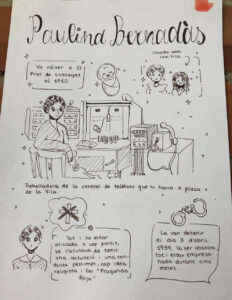 Paulina Bernadàs
Va néixer a El
Prat de Llobregat
el 1920
Casada amb
una filla
Treballadora de la central de telèfons que hi havia a plaça
de la Vila.
Tot i no estar
afiliada a cap partit,
se l'acusava de tenir
una actuació i una con-
ducta pèssimes, cap idea
religiosa i fer "Propaganda
Roja"
La van detenir
el dia 8 d'abril
1939. Va ser absolta,
tot i estar empreso-
nada durant cinc
mesos.